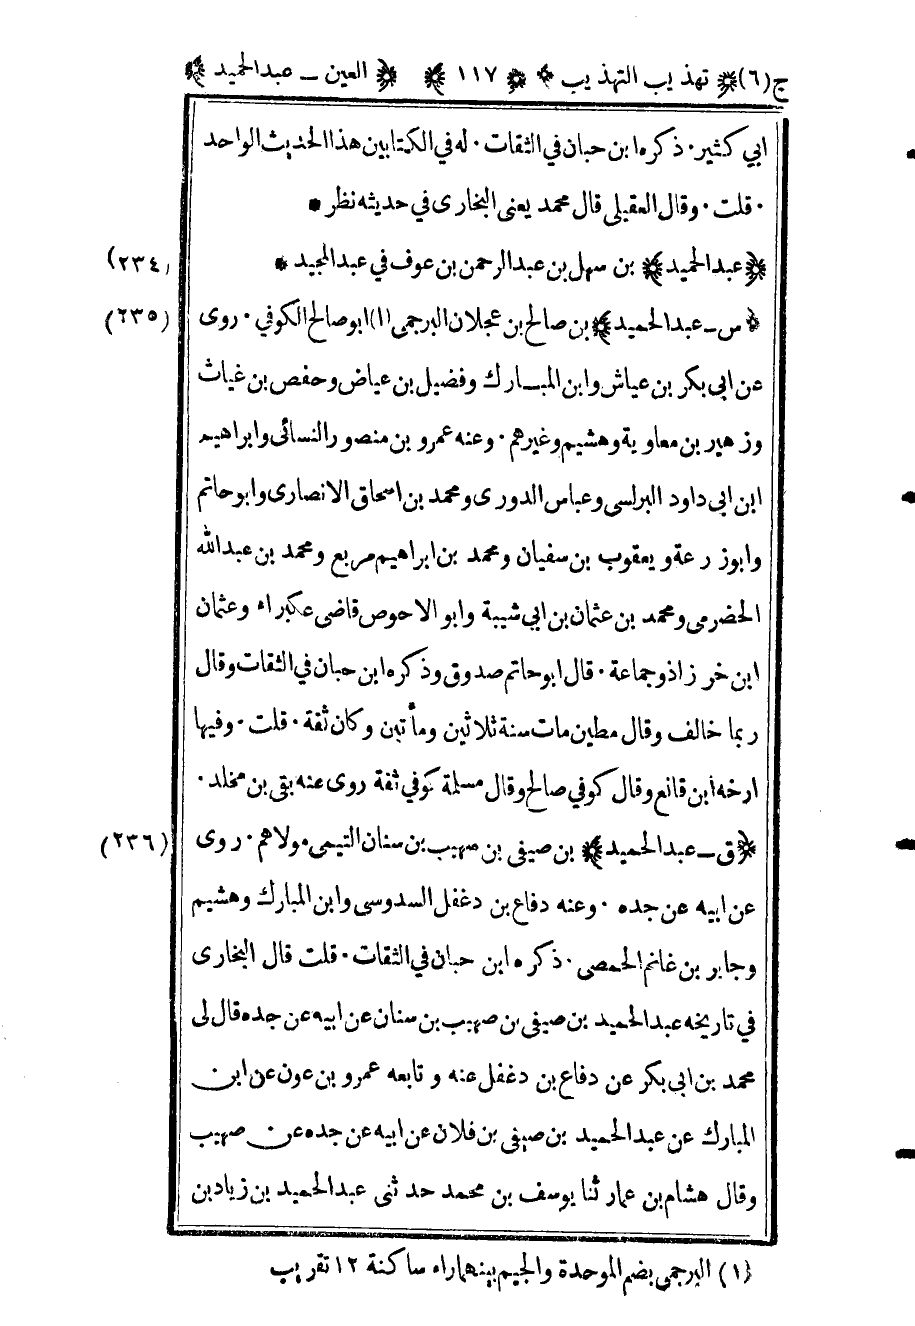 ج(٦) ﴿ تهذيب التهذيب ﴾ ﴿ ١١٧ ﴾ ﴿ العين ـ عبدالحميد ﴾
ابي كثير · ذكره ابن حبان في الثقات · له في الكتابين هذا الحديث الواحد
· قلت · وقال العقيلي قال محمد يعنى البخارى في حديثه نظر *
﴿ عبد الحميد ﴾ بن سهل بن عبد الرحمن بن عوف في عبد المجيد * (٢٣٤)
﴿ س ـ عبد الحميد ﴾ بن صالح بن عجلان البرجمى (١) ابو صالح الكوفي · روى (٢٣٥)
عن ابى بكر بن عياش وابن المبارك وفضيل بن عياض وحفص بن غياث
وزهير بن معاوية وهشيم وغيرهم · وعنه عمرو بن منصور النسائى وابراهيم
ابن ابى داود البرلسى وعباس الدورى ومحمد بن اسحاق الانصارى وابو حاتم
وابو زرعة ويعقوب بن سفيان ومحمد بن ابراهيم مربع ومحمد بن عبد الله
الحضرمى ومحمد بن عثمان بن ابي شيبة وابو الاحوص قاضى عكبراء وعثمان
ابن خرزاذ وجماعة · قال ابو حاتم صدوق وذكره ابن حبان في الثقات وقال
ربما خالف وقال مطين مات سنة ثلاثين ومأتين وكان ثقة · قلت · وفيها
ارخه ابن قانع وقال كوفي صالح وقال مسلمة كوفي ثقة روى عنه بقى بن مخلد ·
﴿ ق ـ عبد الحميد ﴾ بن صيفى بن صهيب بن سنان التيمى مولاهم · روى (٢٣٦)
عن ابيه عن جده · وعنه دفاع بن دغفل السدوسى وابن المبارك وهشيم
وجابر بن غانم الحمصى · ذكره ابن حبان في الثقات · قلت قال البخارى
في تاريخه عبد الحميد بن صيفى بن صهيب بن سنان عن ابيه عن جده قال لى
محمد بن ابى بكر عن دفاع بن دغفل عنه وتابعه عمرو بن عون عن ابن
المبارك عن عبد الحميد بن صيفى بن فلان عن ابيه عن جده عن صهيب
وقال هشام بن عمار ثنا يوسف بن محمد حدثنى عبد الحميد بن زياد بن
(١) البرجمي بضم الموحدة والجيم بينهما راء ساكنة ١٢ تقريب